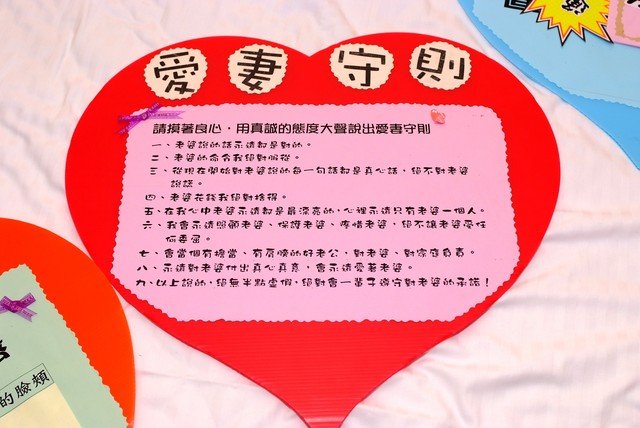 愛妻守則
請摸著良心，用真誠的態度大聲說出愛妻守則
一、老婆說的話永遠都是對的。
二、老婆的命令我絕對服從。
三、從現在開始對老婆說的每一句話都是真心話，絕不對老婆
說謊。
四、老婆花錢我絕對捨得。
五、在我心中老婆永遠都是最漂亮的，心裡永遠只有老婆一個人。
六、我會永遠照顧老婆、保護老婆、疼惜老婆，絕不讓老婆受任
何委屈。
七、會當個有擔當、有肩膀的好老公，對老婆、對家庭負責。
八、永遠對老婆付出真心真意，會永遠愛著老婆。
九、以上說的，絕無半點虛假，絕對會一輩子遵守對老婆的承諾！
的臉頰